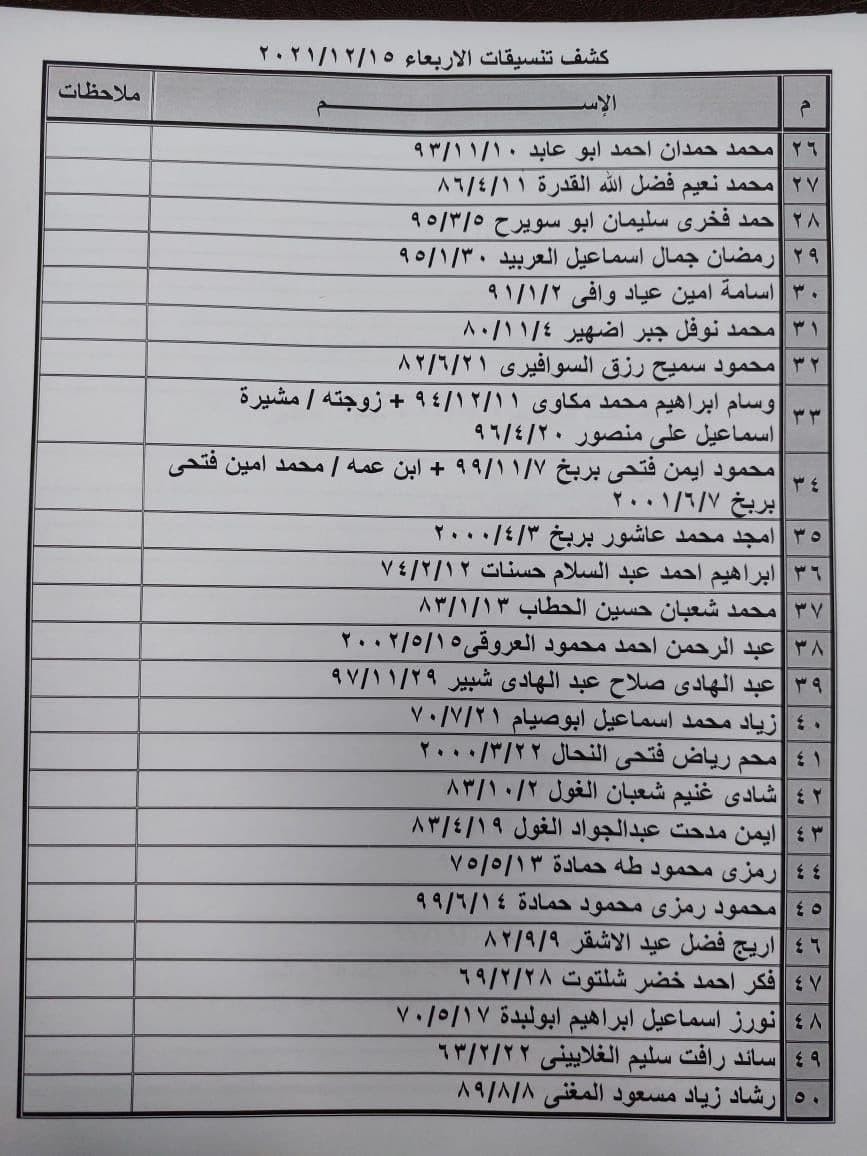 كشف تنسيقات الاربعاء ٢٠٢١/١٢/١٥
م الإســـــــــــــــم ملاحظات
٢٦ محمد حمدان احمد ابو عابد ٩٣/١١/١٠
٢٧ محمد نعيم فضل الله القدرة ٨٦/٤/١١
٢٨ حمد فخرى سليمان ابو سويرح ٩٥/٣/٥
٢٩ رمضان جمال اسماعيل العربيد ٩٥/١/٣٠
٣٠ اسامة امين عياد وافى ٩١/١/٢
٣١ محمد نوفل جبر اضهير ٨٠/١١/٤
٣٢ محمود سميح رزق السوافيرى ٨٢/٦/٢١
٣٣ وسام ابراهيم محمد مكاوى ٩٤/١٢/١١ + زوجته / مشيرة
اسماعيل على منصور ٩٦/٤/٢٠
٣٤ محمود ايمن فتحى بربخ ٩٩/١١/٧ + ابن عمه / محمد امين فتحى
بربخ ٢٠٠١/٦/٧
٣٥ امجد محمد عاشور بربخ ٢٠٠٠/٤/٣
٣٦ ابراهيم احمد عبد السلام حسنات ٧٤/٢/١٢
٣٧ محمد شعبان حسين الحطاب ٨٣/١/١٣
٣٨ عبد الرحمن احمد محمود العروقى٢٠٠٢/٥/١٥
٣٩ عبد الهادى صلاح عبد الهادى شبير ٩٧/١١/٢٩
٤٠ زياد محمد اسماعيل ابوصيام ٧٠/٧/٢١
٤١ محم رياض فتحى النحال ٢٠٠٠/٣/٢٢
٤٢ شادى غنيم شعبان الغول ٨٣/١٠/٢
٤٣ ايمن مدحت عبدالجواد الغول ٨٣/٤/١٩
٤٤ رمزى محمود طه حمادة ٧٥/٥/١٣
٤٥ محمود رمزى محمود حمادة ٩٩/٦/١٤
٤٦ اريج فضل عيد الاشقر ٨٢/٩/٩
٤٧ فكر احمد خضر شلتوت ٦٩/٢/٢٨
٤٨ نورز اسماعيل ابراهيم ابولبدة ٧٠/٥/١٧
٤٩ سائد رافت سليم الغلايينى ٦٣/٢/٢٢
٥٠ رشاد زياد مسعود المغنى ٨٩/٨/٨